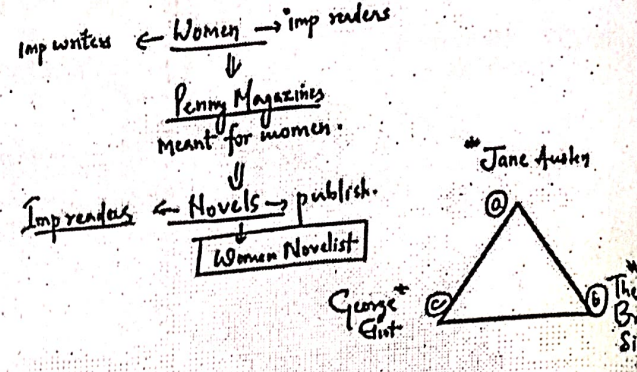 Imp writers ← Women → imp readers
⇓
Penny Magazines
Meant for women.
⇓
Imp readers ← Novels → publish.
↓
Women Novelist
* Jane Austen
(a)
George *
Eliot
(c)
(b)
* The
Br
Si